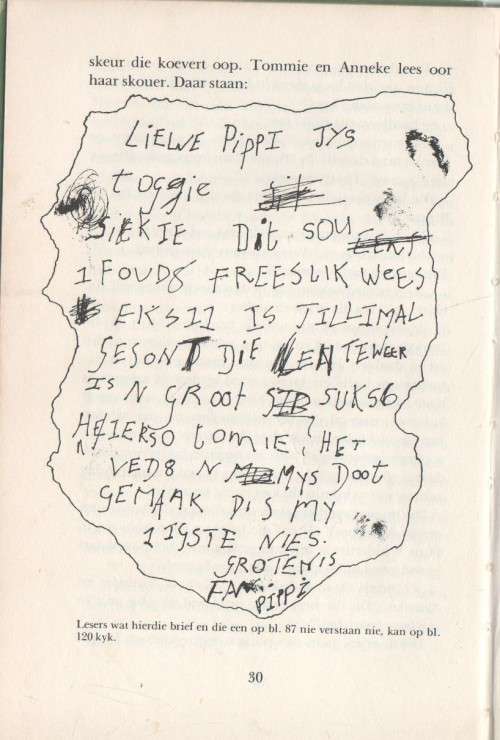 skeur die koevert oop. Tommie en Anneke lees oor
haar skouer. Daar staan:
LiELWE PippI JYS
toggie
SIEKIE Dit SOU
1 FOUD8 FREESLIK WeES
EKS11 IS TILLIMAL
GESONT Die LENTEWEER
IS N GROOt SUKS6
HIERSO tOMIE HET
VED8 N MYS Doot
GEMAAK DIS MY
1IGSTE NIES.
GROTENIS
FAN PIPPI
Lesers wat hierdie brief en die een op bl. 87 nie verstaan nie, kan op bl.
120 kyk.
30